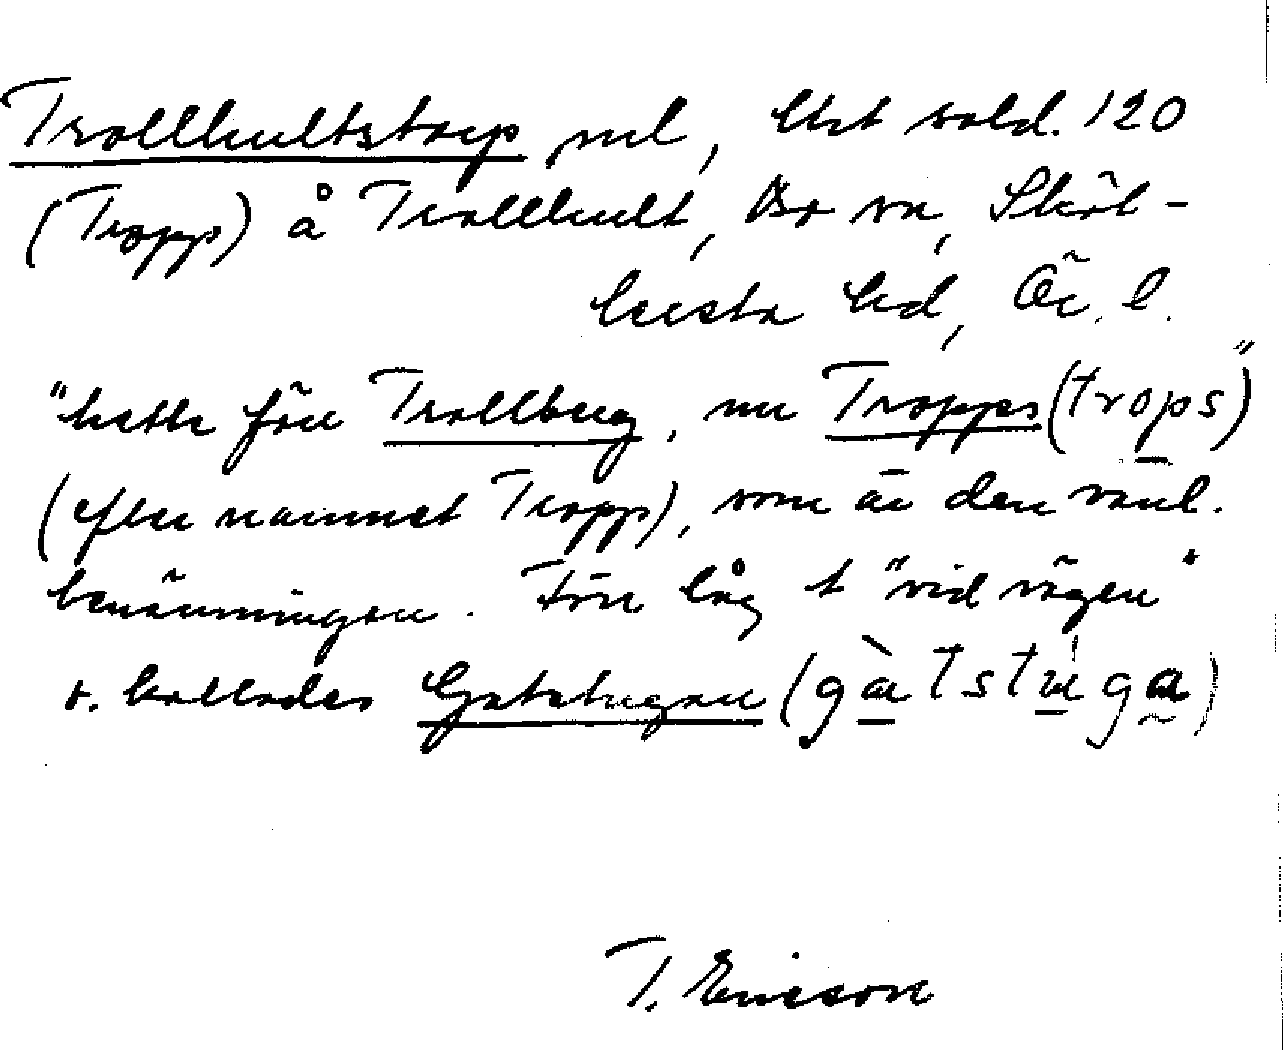 Trollhultstorp ml, likt sold. 120
(Tropp) å Trollhult, Bo sn, Sköl-
lersta hd, Ör. l.
"hette förr Trollberg, nu Tropps (trops)"
(efter namnet Tropp), som är den vanl.
benämningen. Förr låg t "vid vägen"
o. kallades Gatstugan (gàtstúga)
T. Ericson